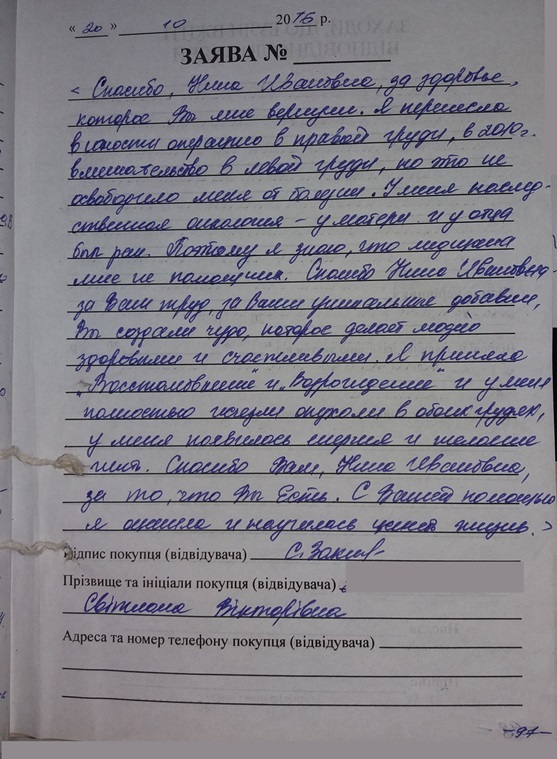 « 20 » 10 2016 р.
ЗАЯВА №
< Спасибо, Нина Ивановна, за здоровье,
которое Вы мне вернули. Я перенесла
в юности операцию в правой груди, в 2010 г.
вмешательство в левой груди, но это не
освободило меня от болезни. У меня наслед-
ственная онкология - у матери и у отца
был рак. Поэтому я знаю, что медицина
мне не помощник. Спасибо Нина Ивановна
за Ваш труд, за Ваши уникальные добавки,
Вы создали чудо, которое делает людей
здоровыми и счастливыми. Я приняла
„Восстановление" и „Возрождение" и у меня
полностью исчезли опухоли в обоих грудях,
у меня появилось энергия и желание
жить. Спасибо Вам, Нина Ивановна,
за то, что Вы Есть. С Вашей помощью
я ожила и научилась жизнь. >
Підпис покупця (відвідувача)
Прізвище та ініціали покупця (відвідувача)
Світлана Вікторівна
Адреса та номер телефону покупця (відвідувача)
-97-